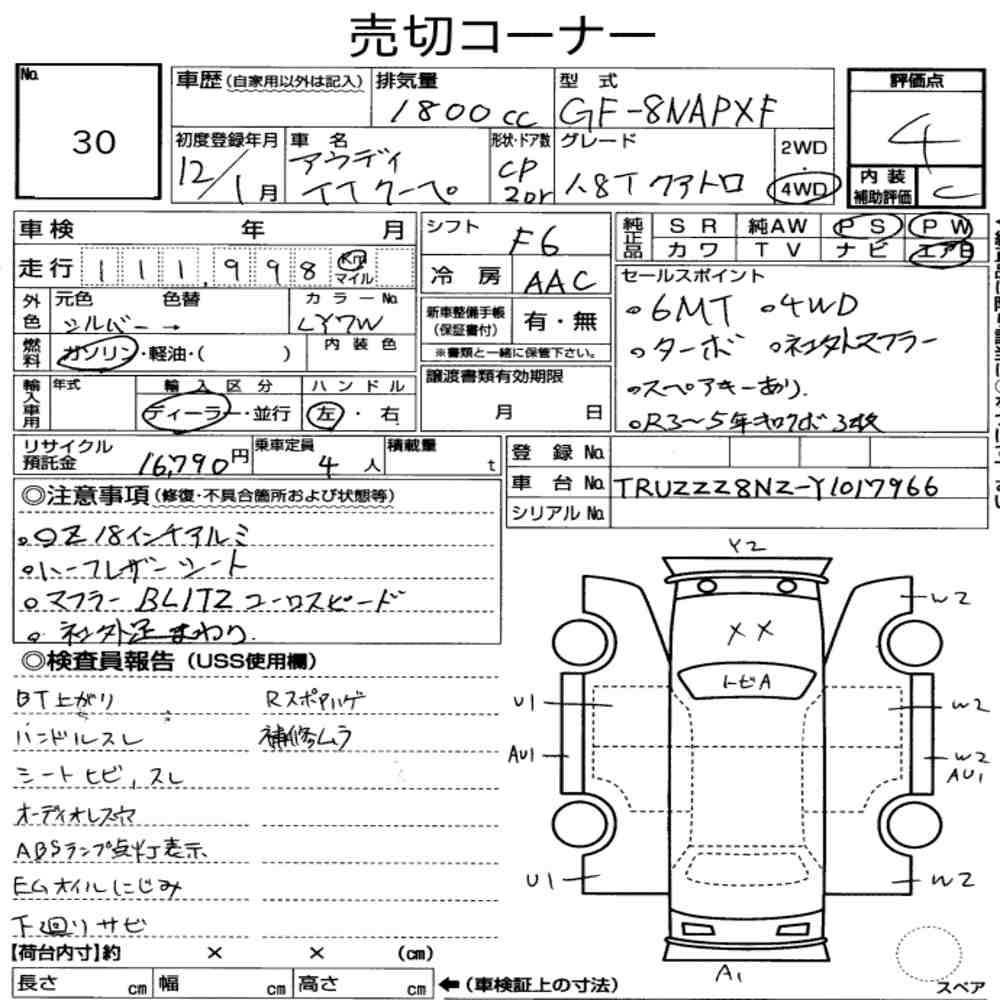 売切コーナー
No. 30
車歴(自家用以外は記入)
排気量 1800cc
型式 GF-8NAPXF
評価点 4
初度登録年月 12/1月
車名 アウディ TTクーペ
形状・ドア数 CP 2Dr
グレード 1.8T クアトロ
2WD・4WD
内装補助評価 C
車検 年 月
走行 111,998 Km マイル
シフト F6
冷房 AAC
純正品 SR 純AW PS PW
カワ TV ナビ エアB
外色 元色 シルバー → 色替
カラーNo. LY7W
燃料 ガソリン・軽油・( )
内装色
新車整備手帳(保証書付) 有・無
※書類と一緒に保管下さい。
セールスポイント
○6MT ○4WD
○ターボ ○社外スフラー
○スペアキーあり.
○R3〜5年キロクボ3枚
輸入車用 年式
輸入区分 ディーラー・並行
ハンドル 左・右
譲渡書類有効期限 月 日
リサイクル預託金 16,790円
乗車定員 4人
積載量 t
登録No.
車台No. TRUZZZ8NZ-Y1017966
シリアルNo.
◎注意事項(修復・不具合箇所および状態等)
○OZ 18インチアルミ
○ハーフレザーシート
○マフラー BLITZ ユーロスピード
○社外足まわり.
◎検査員報告(USS使用欄)
BT上がり
Rスポアルゲ
ハンドルスレ
補修ムラ
シートヒビ,スレ
オーディオレス穴
ABSランプ点灯表示
EGオイルにじみ
下廻りサビ
Y2
XX
トビA
W2
U1
W2
AU1
W2
AU1
U1
W2
A1
スペア
【荷台内寸】約 × × (cm)
長さ cm 幅 cm 高さ cm ←(車検証上の寸法)